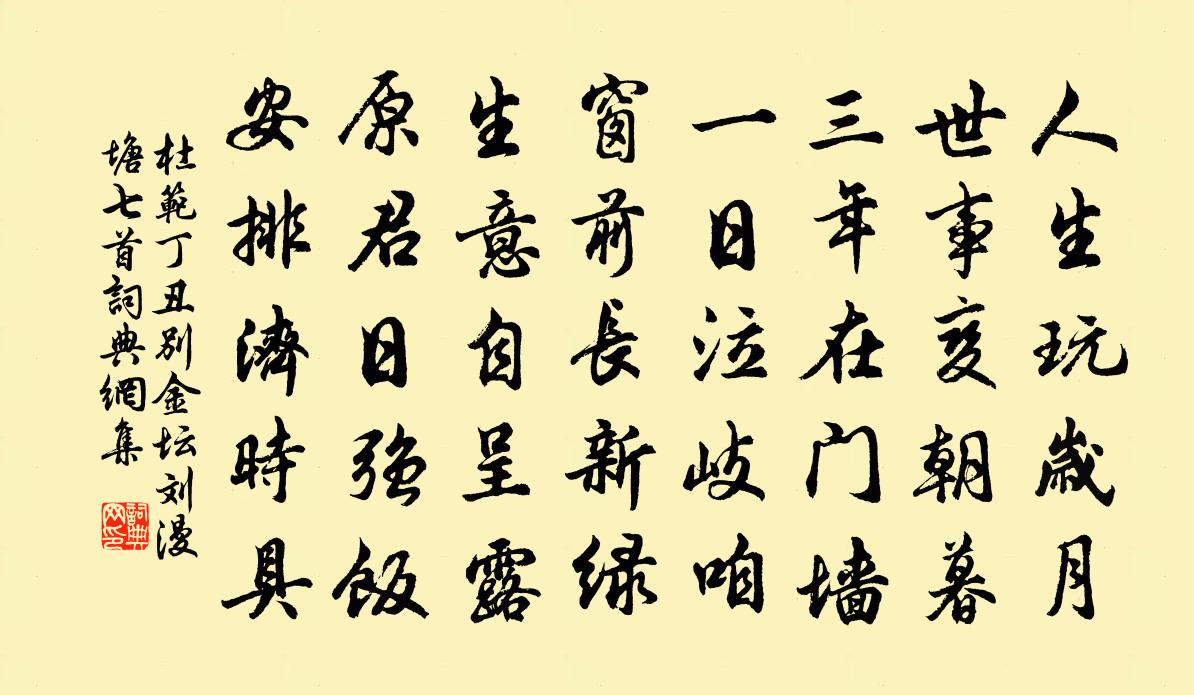 人生玩歲月
世事变朝暮
三年在门墙
一日泣岐咱
窗前長新绿
生意自呈露
原君日强飯
安排濟時具
杜範丁丑别金坛刘漫
塘七首詞典網集
詞典
网印